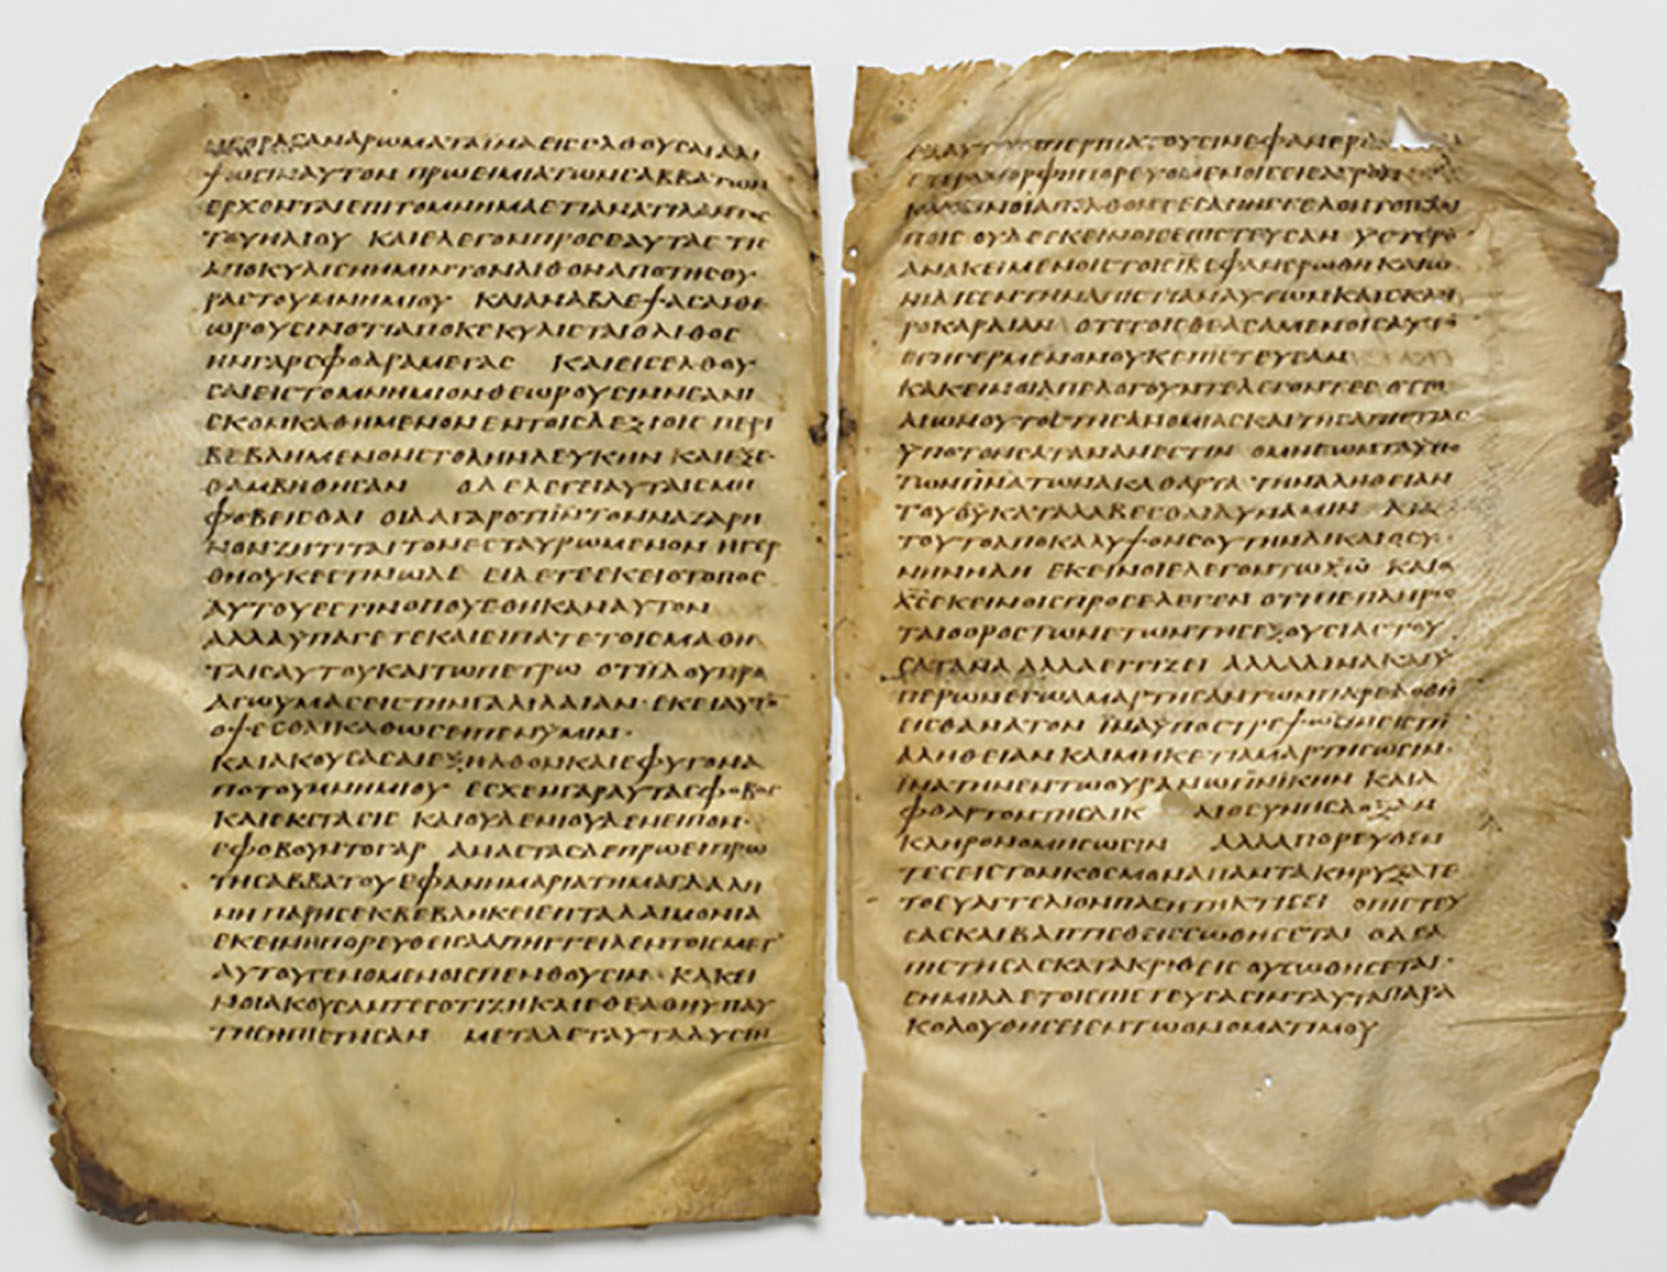 ΗΓΟΡΑϹΑΝΑΡΩΜΑΤΑΪΝΑΕΙϹΕΛΘΟΥϹΑΙΑΛΙ
ΨΩϹΙΝΑΥΤΟΝ ΠΡΩΕΙΜΙΑΤΩΝϹΑΒΒΑΤΩΝ
ΕΡΧΟΝΤΑΙΕΠΙΤΟΜΝΗΜΑΕΤΙΑΝΑΤΙΛΑΝΤΟϹ
ΤΟΥΗΛΙΟΥ ΚΑΙΕΛΕΓΟΝΠΡΟϹΕΑΥΤΑϹ ΤΙϹ
ΑΠΟΚΥΛΙϹΗΗΜΙΝΤΟΝΛΙΘΟΝΑΠΟΤΗϹΘΥ
ΡΑϹΤΟΥΜΝΗΜΙΟΥ ΚΑΙΑΝΑΒΛΕΨΑϹΑΙΘΕ
ΩΡΟΥϹΙΝΟΤΙΑΠΟΚΕΚΥΛΙϹΤΑΙΟΛΙΘΟϹ
ΗΝΓΑΡϹΦΟΔΡΑΜΕΓΑϹ ΚΑΙΕΙϹΕΛΘΟΥ
ϹΑΙΕΙϹΤΟΜΝΗΜΙΟΝΘΕΩΡΟΥϹΙΝΝΕΑΝΙ
ϹΚΟΝΚΑΘΗΜΕΝΟΝΕΝΤΟΙϹΔΕΞΙΟΙϹ ΠΕΡΙ
ΒΕΒΛΗΜΕΝΟΝϹΤΟΛΗΝΛΕΥΚΗΝ ΚΑΙΕΞΕ
ΘΑΜΒΗΘΗϹΑΝ ΟΔΕΛΕΓΕΙΑΥΤΑΙϹΜΗ
ΦΟΒΕΙϹΘΑΙ ΟΙΔΑΓΑΡΟΤΙΙΝΤΟΝΝΑΖΑΡΗ
ΝΟΝΖΗΤΙΤΑΙΤΟΝΕϹΤΑΥΡΩΜΕΝΟΝ ΗΓΕΡ
ΘΗΟΥΚΕϹΤΙΝΩΔΕ ΕΙΔΕΤΕΕΚΕΙΟΤΟΠΟϹ
ΑΥΤΟΥΕϹΤΙΝΟΠΟΥΕΘΗΚΑΝΑΥΤΟΝ
ΑΛΛΑΥΠΑΓΕΤΕΚΑΙΕΙΠΑΤΕΤΟΙϹΜΑΘΗ
ΤΑΙϹΑΥΤΟΥΚΑΙΤΩΠΕΤΡΩ ΟΤΙΪΔΟΥΠΡΟ
ΑΓΩΥΜΑϹΕΙϹΤΗΝΓΑΛΙΛΑΙΑΝ·ΕΚΕΙΑΥΤΟ
ΟΨΕϹΘΑΙΚΑΘΩϹΕΙΠΕΝΥΜΙΝ·
ΚΑΙΑΚΟΥϹΑϹΑΙΕΞΗΛΘΟΝΚΑΙΕΦΥΓΟΝΑ
ΠΟΤΟΥΜΝΗΜΙΟΥ ΕϹΧΕΝΓΑΡΑΥΤΑϹΦΟΒΟϹ
ΚΑΙΕΚϹΤΑϹΙϹ ΚΑΙΟΥΔΕΝΙΟΥΔΕΝΕΙΠΟΝ·
ΕΦΟΒΟΥΝΤΟΓΑΡ ΑΝΑϹΤΑϹΔΕΠΡΩΕΙΠΡΩ
ΤΗϹΑΒΒΑΤΟΥΕΦΑΝΗΜΑΡΙΑΤΗΜΑΓΔΑΛΗ
ΝΗ ΠΑΡΗϹΕΚΒΕΒΛΗΚΕΙΕΠΤΑΔΑΙΜΟΝΙΑ
ΕΚΕΙΝΗΠΟΡΕΥΘΕΙϹΑΑΠΗΓΓΕΙΛΕΝΤΟΙϹΜΕΤ
ΑΥΤΟΥΓΕΝΟΜΕΝΟΙϹΠΕΝΘΟΥϹΙΝ·ΚΑΚΕΙ
ΝΟΙΑΚΟΥϹΑΝΤΕϹΟΤΙΖΗΚΑΙΕΘΕΑΘΗΥΠΑΥ
ΤΗϹΗΠΙϹΤΗϹΑΝ ΜΕΤΑΔΕΤΑΥΤΑΔΥϹΙΝ
ΕΞΑΥΤΩΝΠΕΡΙΠΑΤΟΥϹΙΝΕΦΑΝΕΡΩ
ΕΤΕΡΑΜΟΡΦΗΠΟΡΕΥΟΜΕΝΟΙϹΕΙϹΑΓΡΟΝ
ΚΑΚΕΙΝΟΙΑΠΕΛΘΟΝΤΕϹΑΠΗΓΓΕΛΟΝΤΟΙϹΛΟΙ
ΠΟΙϹ ΟΥΔΕΕΚΕΙΝΟΙϹΕΠΙϹΤΕΥϹΑΝ ΥϹΤΕΡΟ
ΑΝΑΚΕΙΜΕΝΟΙϹΤΟΙϹΙΒΕΦΑΝΕΡΩΘΗΚΑΙΩ
ΝΙΔΙϹΕΝΤΗΝΑΠΙϹΤΙΑΝΑΥΤΩΝΚΑΙϹΚΛΗ
ΡΟΚΑΡΔΙΑΝ ΟΤΙΤΟΙϹΘΕΑϹΑΜΕΝΟΙϹΑΥΤΟ
ΕΓΗΓΕΡΜΕΝΟΝΟΥΚΕΠΙϹΤΕΥϹΑΝ
ΚΑΚΕΙΝΟΙΑΠΕΛΟΓΟΥΝΤΕΛΕΓΟΝΤΕϹ ΟΤΙΟ
ΑΙΩΝΟΥΤΟϹΤΗϹΑΝΟΜΙΑϹΚΑΙΤΗϹΑΠΙϹΤΙΑϹ
ΥΠΟΤΟΝϹΑΤΑΝΑΝΕϹΤΙΝ ΟΜΗΕΩΝΤΑΥΠΟ
ΤΩΝΠΝΑΤΩΝΑΚΑΘΑΡΤΑ ΤΗΝΑΛΗΘΕΙΑΝ
ΤΟΥΘΥΚΑΤΑΛΑΒΕϹΘΑΙΔΥΝΑΜΙΝ ΔΙΑ
ΤΟΥΤΟΑΠΟΚΑΛΥΨΟΝϹΟΥΤΗΝΔΙΚΑΙΟϹΥ
ΝΗΝΗΔΗ ΕΚΕΙΝΟΙΕΛΕΓΟΝΤΩΧΩ ΚΑΙΟ
ΧϹΕΚΕΙΝΟΙϹΠΡΟϹΕΛΕΓΕΝ ΟΤΙΠΕΠΛΗΡΩ
ΤΑΙΟΟΡΟϹΤΩΝΕΤΩΝΤΗϹΕΞΟΥϹΙΑϹΤΟΥ
ϹΑΤΑΝΑ ΑΛΛΑΕΓΓΙΖΕΙ ΑΛΛΑΔΙΝΑΚΑΙΥ
ΠΕΡΩΝΕΓΩΑΜΑΡΤΗϹΑΝΤΩΝΠΑΡΕΔΟΘΗ
ΕΙϹΘΑΝΑΤΟΝ ΪΝΑΥΠΟϹΤΡΕΨΩϹΙΝΕΙϹΤΗ
ΑΛΗΘΕΙΑΝΚΑΙΜΗΚΕΤΙΑΜΑΡΤΗϹΩϹΙΝ·
ΙΝΑΤΗΝΕΝΤΩΟΥΡΑΝΩΠΝΙΚΗΝ ΚΑΙΑ
ΦΘΑΡΤΟΝΤΗϹΔΙΚ ΑΙΟϹΥΝΗϹΔΟΞΑΝ
ΚΛΗΡΟΝΟΜΗϹΩϹΙΝ ΑΛΛΑΠΟΡΕΥΘΕΝ
ΤΕϹΕΙϹΤΟΝΚΟϹΜΟΝΑΠΑΝΤΑΚΗΡΥΞΑΤΕ
ΤΟΕΥΑΓΓΕΛΙΟΝΠΑϹΗΤΗΚΤΙϹΕΙ ΟΠΙϹΤΕΥ
ϹΑϹΚΑΙΒΑΠΤΙϹΘΕΙϹϹΩΘΗϹΕΤΑΙ ΟΔΕΑ
ΠΙϹΤΗϹΑϹΚΑΤΑΚΡΙΘΕΙϹ ΟΥϹΩΘΗϹΕΤΑΙ·
ϹΗΜΙΑΔΕΤΟΙϹΠΙϹΤΕΥϹΑϹΙΝΤΑΥΤΑΠΑΡΑ
ΚΟΛΟΥΘΗϹΕΙΕΝΤΩΟΝΟΜΑΤΙΜΟΥ